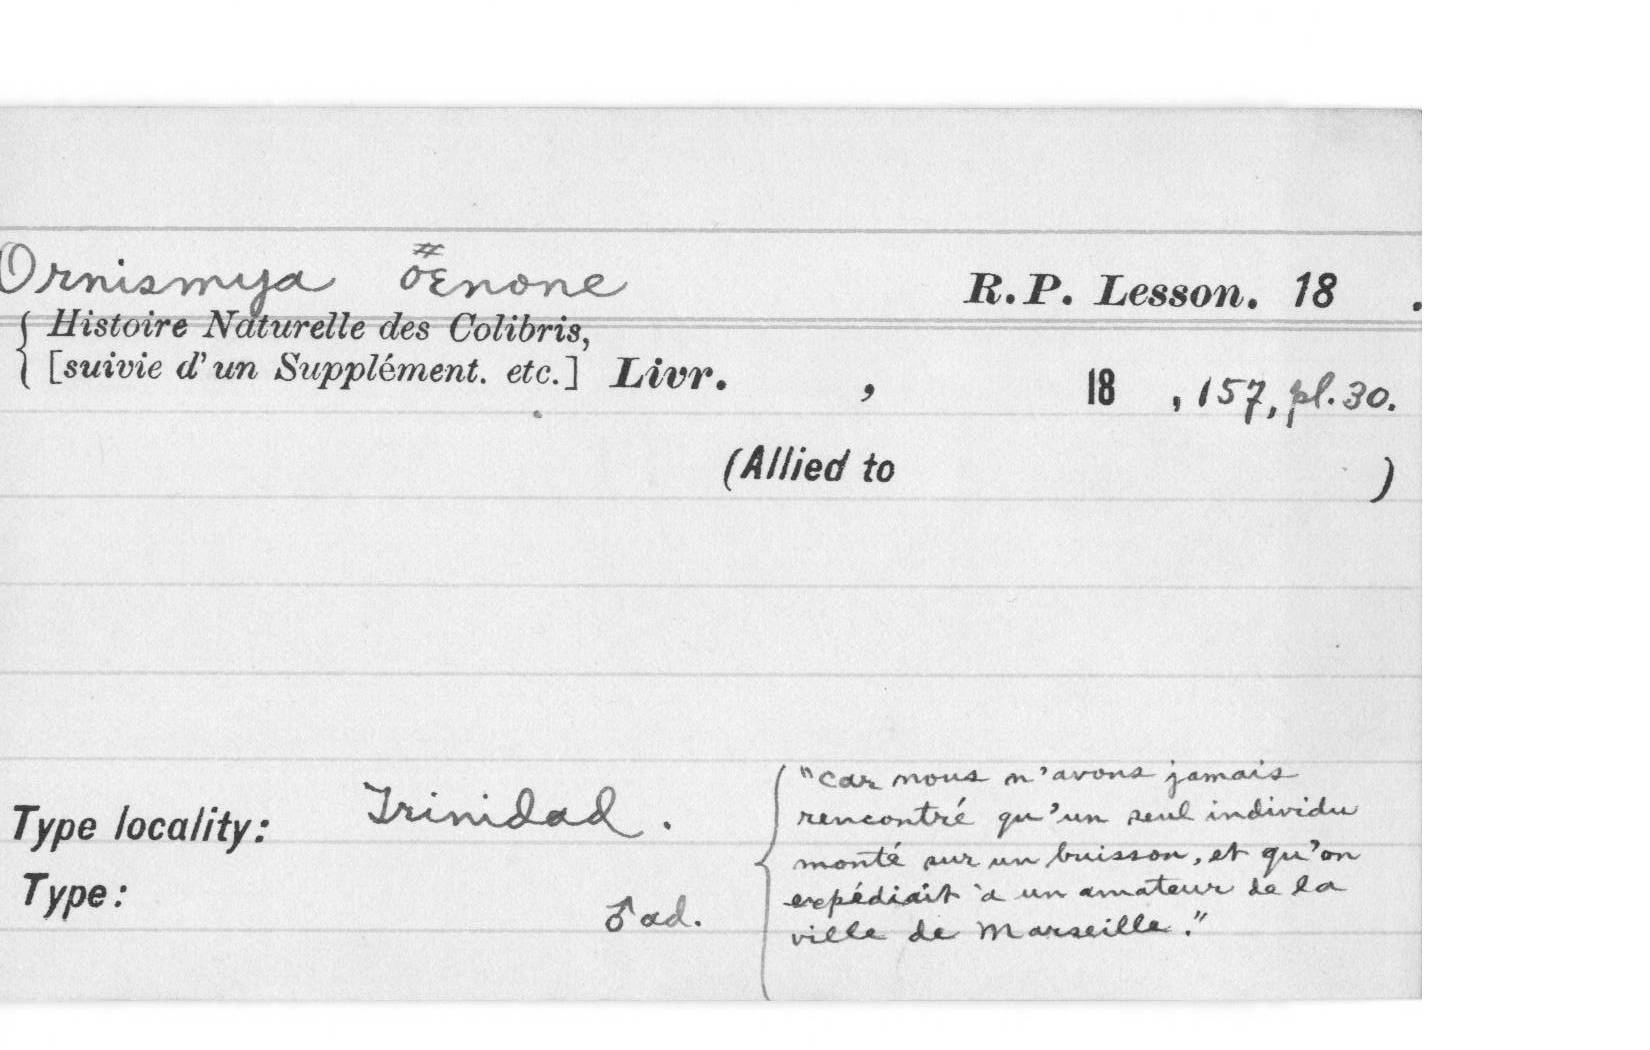 Ornismya Œnone R.P. Lesson. 18 .
Histoire Naturelle des Colibris,
[suivie d'un Supplément. etc.] Livr. , 18 , 157, pl. 30.
(Allied to )
"Car nous n'avons jamais
rencontré qu'un seul individu
monté sur un buisson, et qu'on
expédiait à un amateur de la
ville de Marseille."
Type locality: Trinidad.
Type: ♂ ad.